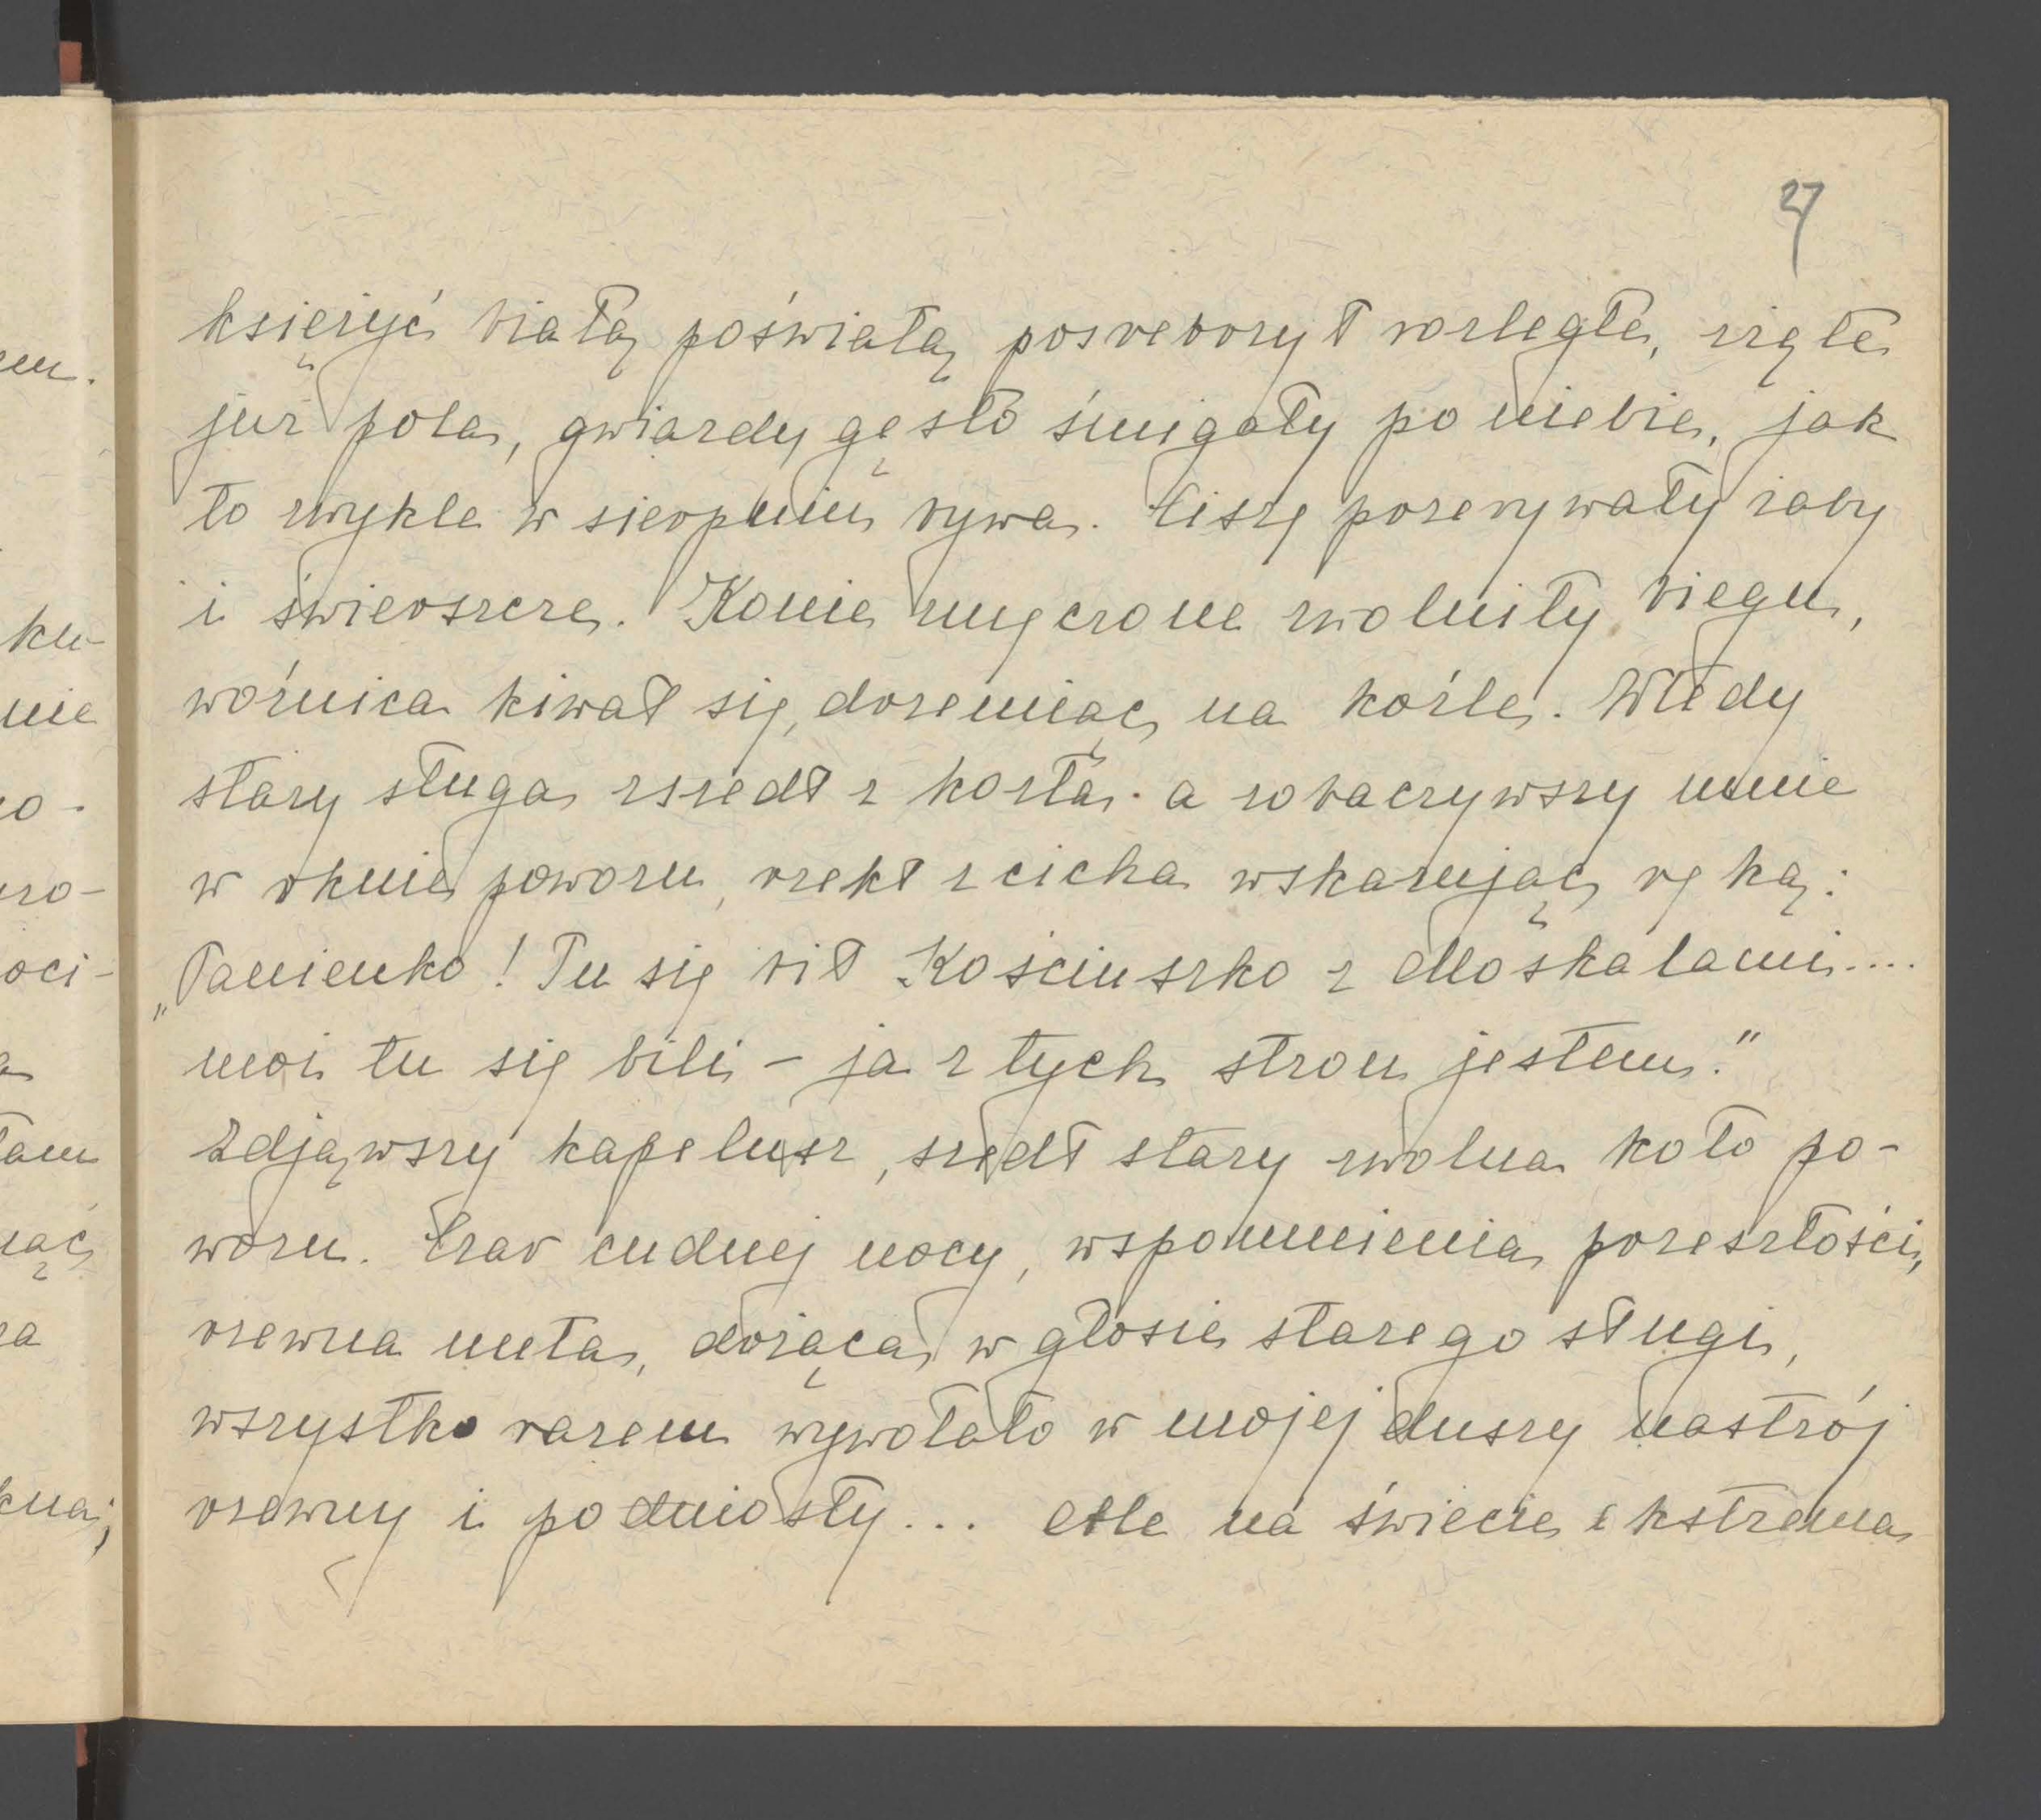 27
księżyc białą poświatą posrebrzył rozległe, zżęte
już pola, gwiazdy gęsto śmigały po niebie, jak
to zwykle w sierpniu bywa. Ciszę przerywały żaby
i świerszcze. Konie zmęczone zwolniły biegu,
woźnica kiwał się, drzemiąc na koźle. Wtedy
stary sługa zsiedł z kozła. a zobaczywszy mnie
w oknie powozu, rzekł z cicha wskazując ręką:
„Panienko! Tu się bił Kościuszko z Moskalami....
moi tu się bili – ja z tych stron jestem."
Zdjąwszy kapelusz, szedł stary zwolna koło po-
wozu. Czar cudnej nocy, wspomnienia przeszłości,
rzewna nuta, drżąca w głosie starego sługi,
wszystko razem wywołało w mojej duszy nastrój
rzewny i podniosły... Ale na świecie ekstrema